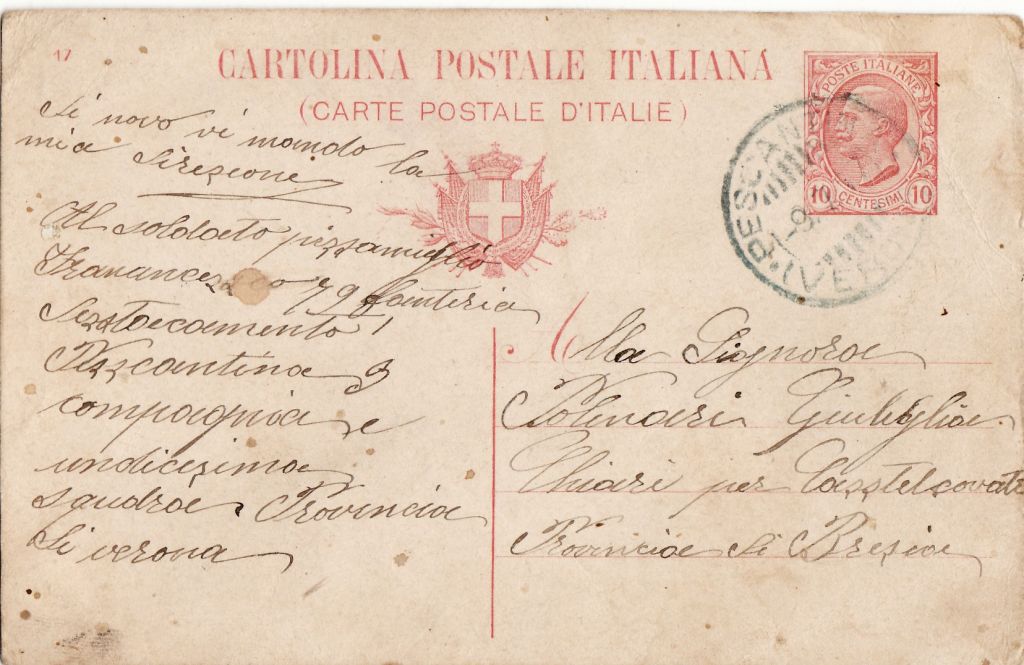 17
CARTOLINA POSTALE ITALIANA
(CARTE POSTALE D'ITALIE)
POSTE ITALIANE
10 CENTESIMI 10
PESCAN
(VER
Di novo vi mando la
mia Direzione
Al soldato pizzamiglio
79 fanteria
Pezzcantina 3
compagnia e
undicezima
squdra Provincia
Di verona
Alla Signora
Polinari
Chiari per Casstelcovati
Provincia Di Bresia